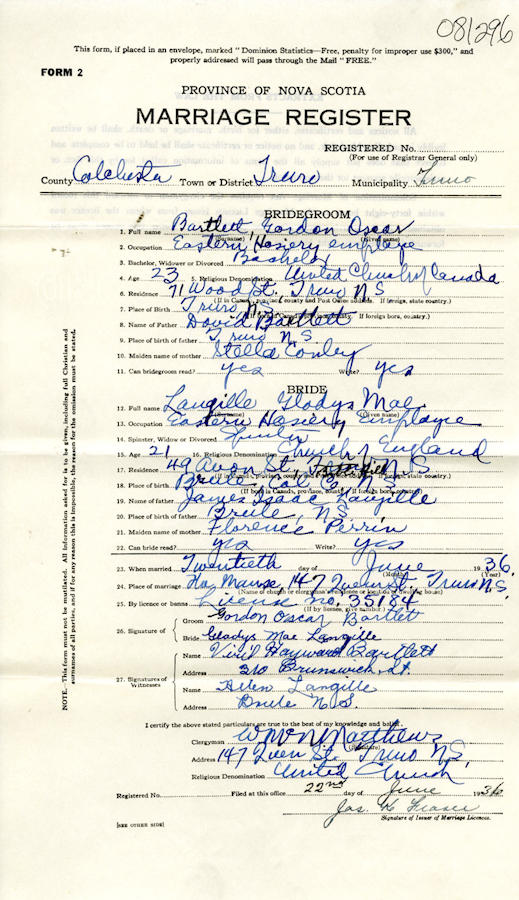 081296
This form, if placed in an envelope, marked "Dominion Statistics—Free, penalty for improper use $300," and
properly addressed will pass through the Mail "FREE."
FORM 2
PROVINCE OF NOVA SCOTIA
MARRIAGE REGISTER
REGISTERED No.
(For use of Registrar General only)
County Colchester Town or District Truro Municipality Truro
BRIDEGROOM
1. Full name Bartlett Gordon Oscar
(Surname) (Given name)
2. Occupation Eastern Hosiery employe
3. Bachelor, Widower or Divorced Bachelor
4. Age 23 5. Religious Denomination United Church of Canada
6. Residence 71 Wood St. Truro N.S
(If in Canada, province, county and Post Office address. If foreign, state country.)
7. Place of Birth Truro N.S
8. Name of Father David Bartlett
9. Place of birth of father Truro N.S
10. Maiden name of mother Stella Conley
11. Can bridegroom read? yes Write? yes
BRIDE
12. Full name Langille Gladys Mae
(Surname) (Given name)
13. Occupation Eastern Hosiery Employee
14. Spinster, Widow or Divorced Spinster
15. Age 21 16. Religious Denomination Church of England
17. Residence 49 Avon St., N.S
18. Place of birth
(If born in Canada, province, county. If foreign born, country)
19. Name of father James Isaac Langille
20. Place of birth of father N.S.
21. Maiden name of mother Florence Perrin
22. Can bride read? yes Write? yes
23. When married Twentieth day of June 1936.
(Month) (Year)
24. Place of marriage Manse, 147 Queen St., Truro N.S.
25. By licence or banns License no. 35184
(If by license, give number)
26. Signature of
Groom Gordon Oscar Bartlett
Bride Gladys Mae Langille
27. Signatures of Witnesses
Name Hayward Bartlett
Address 210 Brunswick St.
Name Helen Langille
Address N.S.
I certify the above stated particulars are true to the best of my knowledge and belief.
Clergyman Matthews
(Signature)
Address 147 Queen St. Truro N.S.
Religious Denomination United Church
Registered No. Filed at this office 22nd day of June 1936
Jas. Fraser
Signature of Issuer of Marriage Licences.
[SEE OTHER SIDE]
NOTE.—This form must not be mutilated. All information asked for is to be given, including full Christian and
surnames of all parties, and if for any reason this is impossible, the reason for the omission must be stated.